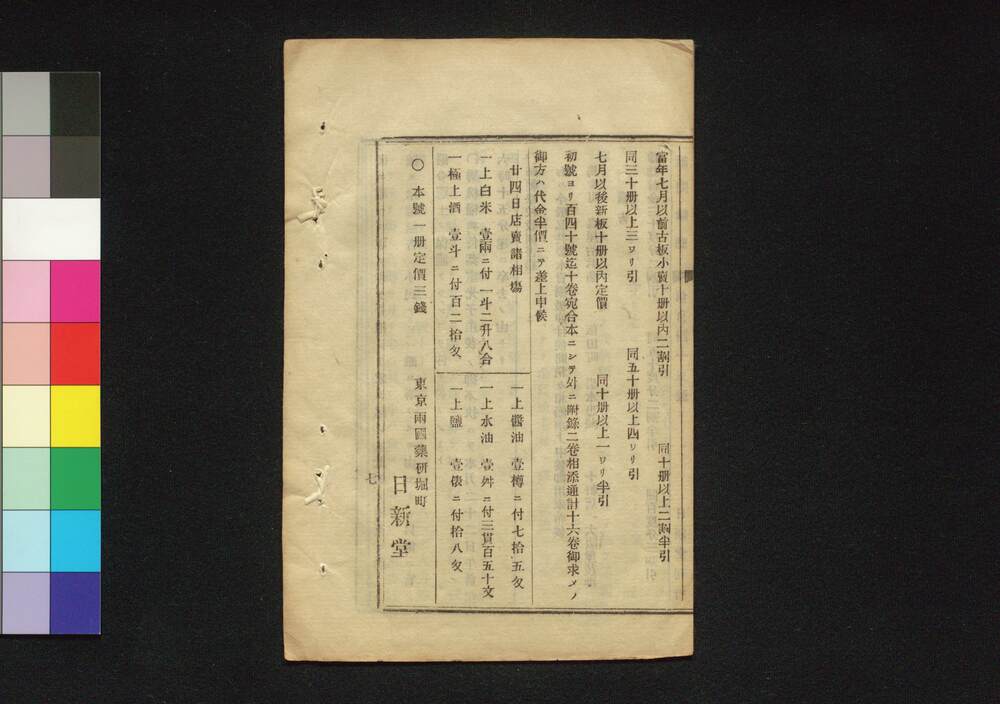 當年七月以前古板小賣十册以內二割引　同十册以上二割半引
同三十册以上三ワリ引　同五十册以上四ワリ引
七月以後新板十册以內定價　同十册以上一ワリ半引
初號ヨリ百四十號迄十卷宛合本ニシテ外ニ附錄二卷相添通計十六卷御求メノ
御方ハ代金半價ニテ差上申候
廿四日店賣諸相塲
一上白米　壹兩ニ付一斗二升八合
一極上酒　壹斗ニ付百二拾匁
一上醬油　壹樽ニ付七拾五匁
一上水油　壹舛ニ付三貫百五十文
一上鹽　壹俵ニ付拾八匁
〇本號一册定價三錢
東京兩國藥硏堀町
日新堂
七